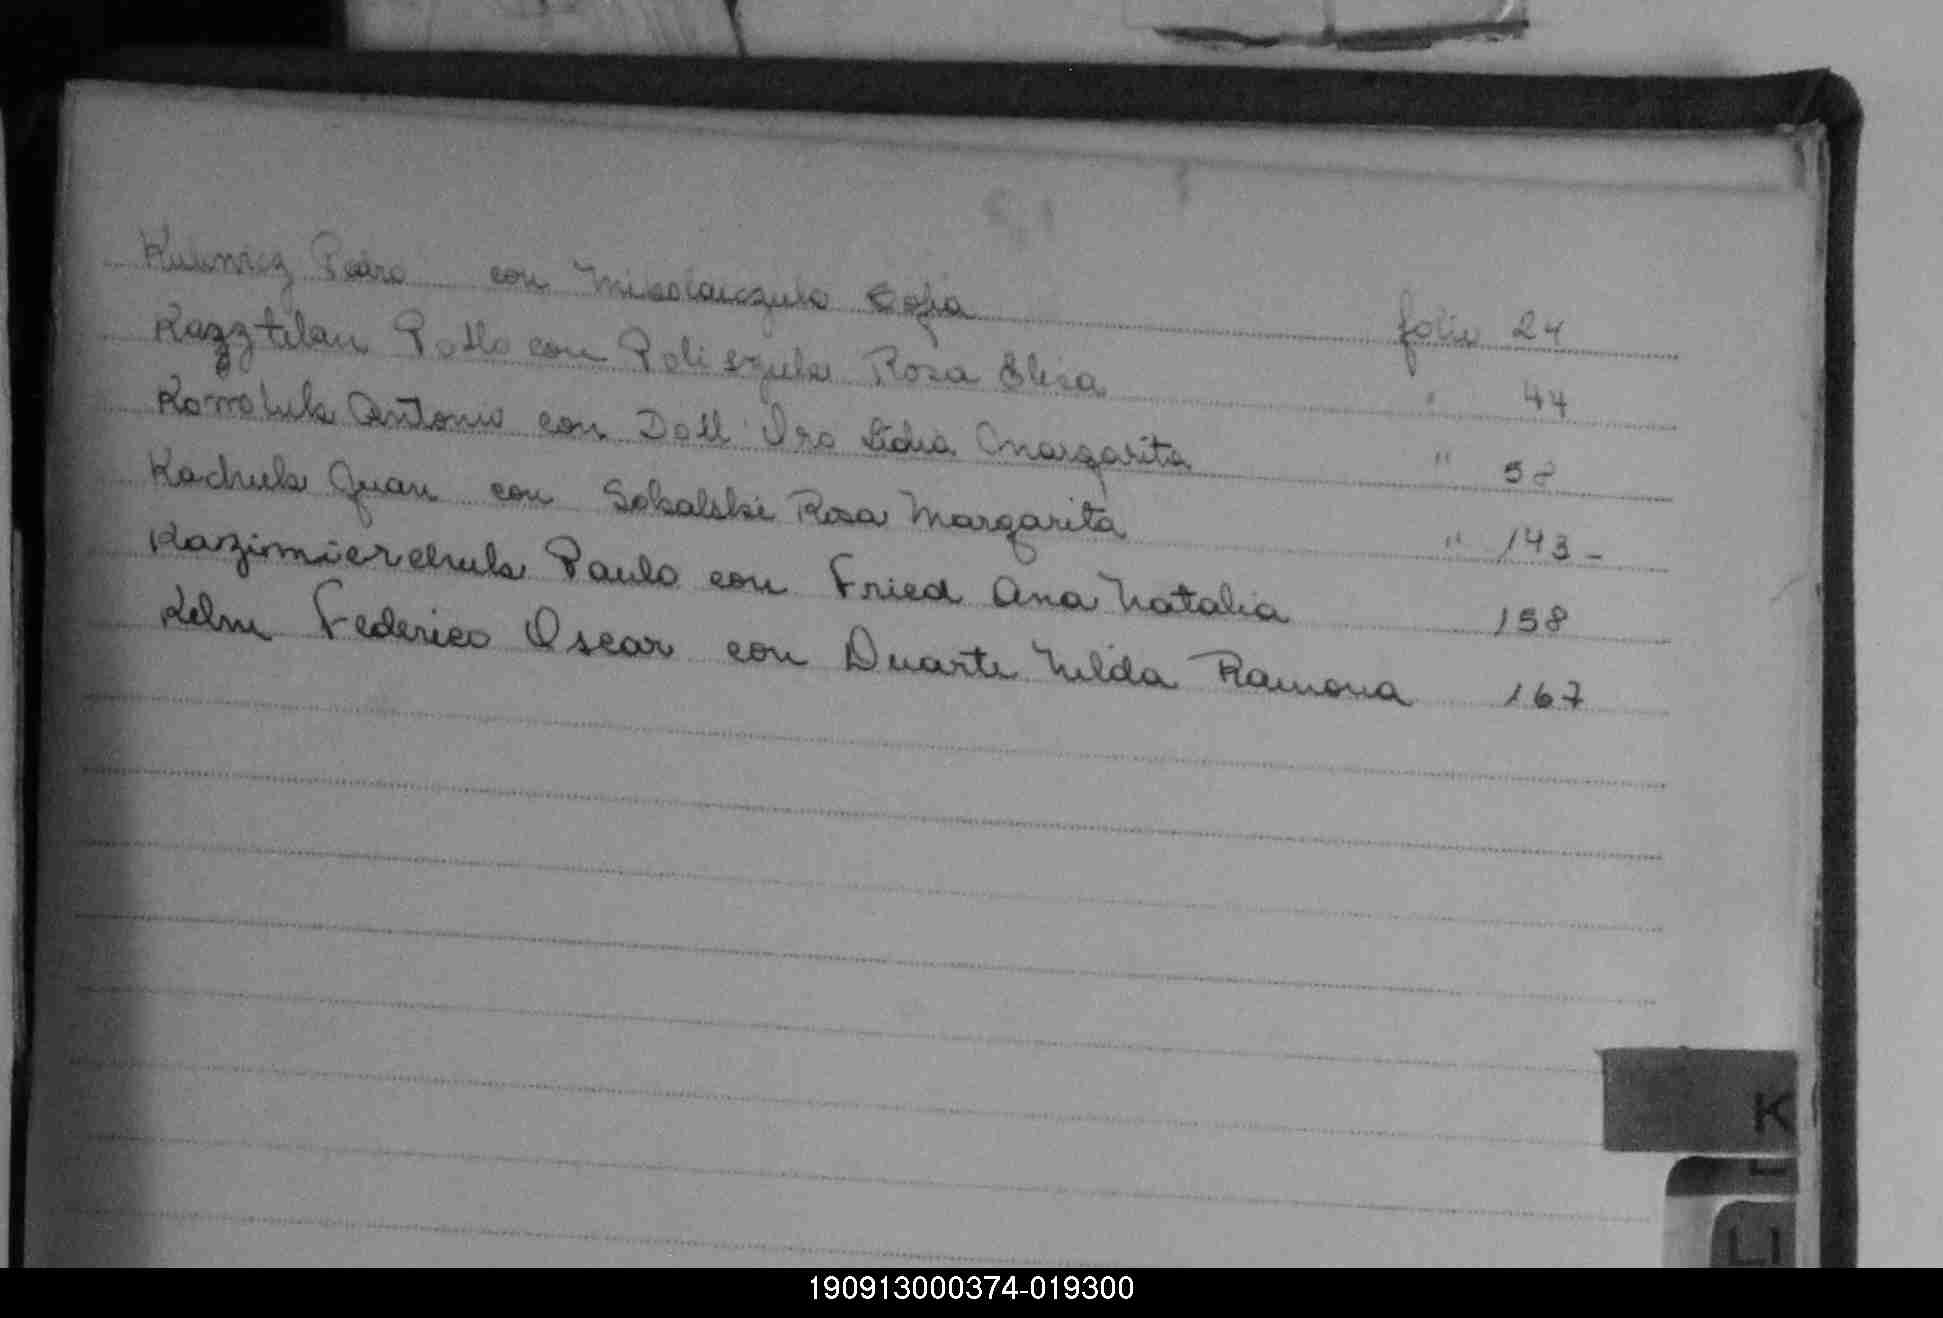 Pedro con Mikolaiczuk Sofia folio 24
Kazztelan Pablo con Poliszuk Rosa Elisa " 44
Antonio con Dall' Oro Lidia Margarita " 58
Kachuk Juan con Sokalski Rosa Margarita " 143 -
Kazimierchuk Paulo con Fried Ana Natalia 158
Kelm Federico Oscar con Duarte Nelda Ramona 167
K
L
190913000374-019300